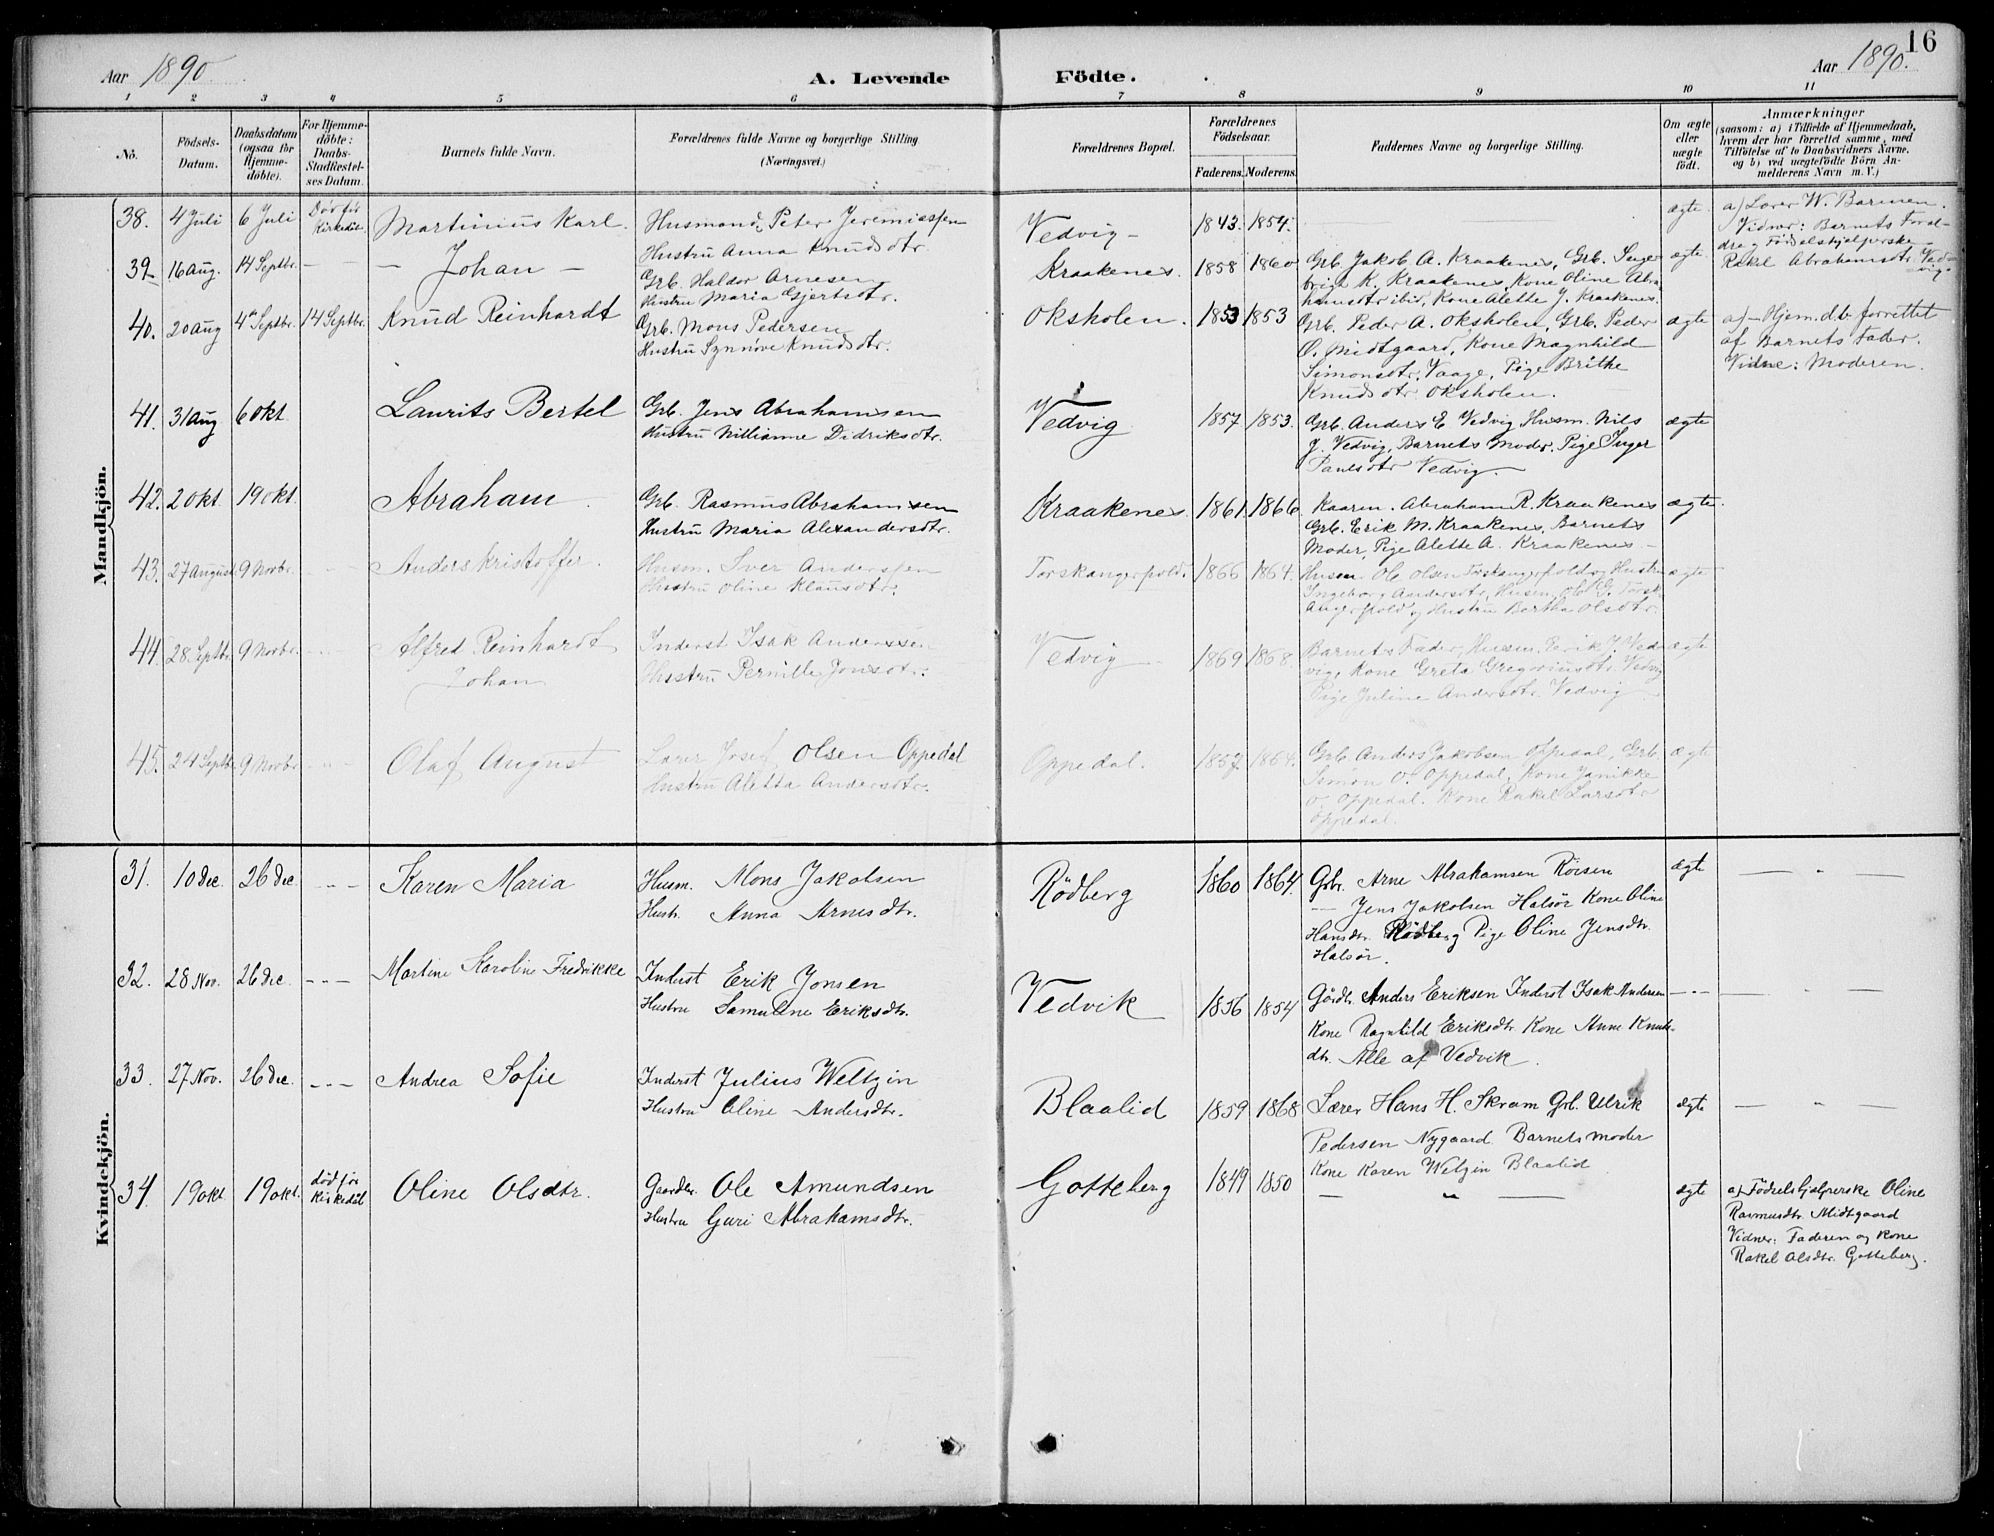 16
Aar 1890
A. Levende Födte.
Aar 1890.
1 2 3 4 5 6 7 8 9 10 11
No.
Födsels-
Datum.
Daabsdatum
(ogsaa for
Hjemme-
döbte).
For Hjemme-
döbte:
Daabs-
Stadfæstel-
ses Datum.
Barnets fulde Navn.
Forældrenes fulde Navne og borgerlige Stilling
(Næringsvei.)
Forældrenes Bopæl.
Forældrenes
Födselsaar.
Faderens. Moderens.
Faddernes Navne og borgerlige Stilling.
Om ægte
eller
uægte
födt.
Anmærkninger
(saasom: a) i Tilfælde af Hjemmedaab,
hvem der har forrettet samme, med
Tilföielse af to Daabsvidners Navne.
og b) ved uægtefödte Börn An-
melderens Navn m. V.)
Mandkjön.
38. 4 Juli 6 Juli Död för
Kirkedåb Martinius Karl.
Husmand Peter Jeremiassen
Hustru Anna Knudsdtr.
Vedvig 1843. 1854. ægte
a) Lærer W. Barmen.
Vidner: Barnets Foræl-
dre og Födselshjelperske
Rakel Abrahamsdtr. Ved-
vig.
39 16 Aug. 14 Septbr. — — Johan —
Grb. Haldor Arnesen
Hustru Maria Gjertsdtr.
Kraakenes. 1858 1860
Grb. Jakob A. Kraakenes, Grb. Inge
brigt K. Kraakenes, Kone Oline Abra
hamsdtr ibid, Kone Alette J. Kraakenes.
ægte
40. 20 Aug 4de Septbr. 14 Septbr. Knud Reinhardt
Grb. Mons Pedersen
Hustru Synnöve Knudsdtr.
Oksholen. 1853 1853
Grb. Peder A. Oksholen, Grb. Peder
O. Midtgaard, Kone Magnhild
Simonsdtr. Vaage, Pige Brithe
Knudsdtr Oksholen.
ægte
a) Hjem.db forrettet
af Barnets Fader.
Vidne: Moderen.
41. 31 Aug 6 Okt. Laurits Bertel
Grb. Jens Abrahamsen
Hustru Nillianne Didriksdtr.
Vedvig 1857 1853.
Grb. Anders E Vedvig Husm. Nils
J. Vedvig, Barnets Moder. Pige Inger
Paulsdtr Vedvig.
ægte
42. 2 Okt. 19 Okt. Abraham
Grb. Rasmus Abrahamsen
Hustru Maria Alexandersdtr.
Kraakenes. 1861. 1866
Kaarm. Abraham R. Kraakenes
Grb. Erik M. Kraakenes, Barnets
Moder, Pige Alette A. Kraakenes
ægte
43. 27 August 9 Novbr. Anders Kristoffer.
Husm. Iver Anderssen
Hustru Oline Klausdtr.
Torskangerpold. 1866 1864.
Husm. Ole Olsen Torskangerpold og Hustru
Ingeborg Andersdtr, Husm. Ole G. Torsk
Angerpold og Hustru Bertha Olsdtr.
ægte
44. 28 Septbr. 9 Novbr. Alfred Reinhardt
Johan
Inderst Isak Anderssen
Hustru Pernille Jonsdtr.
Vedvig 1869 1868.
Barnets Fader, Husm. Erik J. Ved-
vig, Kone Greta Gregoriusdtr. Vedvig
Pige Juline Andersdtr. Vedvig
ægte
45. 24 Septbr. 9 Novbr. Olaf August
Lærer Josef Olsen Oppedal
Hustru Aletta Andersdtr.
Oppedal. 1857. 1864.
Grb. Anders Jakobsen Oppedal, Grb.
Simon O. Oppedal, Kone Janikke
O. Oppedal. Kone Rakel Larsdtr
Oppedal.
ægte
Kvindekjön.
31. 10 Dec. 26 Dec. Karen Maria
Husm. Mons Jakobsen
Hustr. Anna Arnesdtr.
Rödberg 1860 1864.
Grbr. Arne Abrahamsen Röisen
— Jens Jakobsen Halsör Kone Oline
Hansdtr. Rödberg Pige Oline Jensdtr.
Halsör.
ægte
32. 28 Nov. 26 Dec. Martine Karoline Fredrikke
Inderst Erik Jonsen
Hustru Samuline Eriksdtr.
Vedvik 1856 1854
Gårdbr. Anders Eriksen Inderst Isak Andersen
Kone Ragnhild Eriksdtr Kone Anne Knuds-
dtr. Alle af Vedvik.
33. 27 Nov. 26 Dec. Andrea Sofie
Inderst Julius Weltzin
Hustru Oline Andersdtr.
Blaalid 1859 1868
Lærer Hans H. Skram Grb. Ulrik
Pedersen Nygaard Barnets Moder
Kone Karen Weltzin Blaalid
ægte
34. 19 Okt 19 Okt. död för
Kirkedåb Oline Olsdtr.
Gaardbr. Ole Amundsen
Hustru Guri Abrahamsdtr.
Gotteberg 1849 1850 ægte
a) Födselshjelperske Oline
Rasmusdtr. Midtgaard
Vidner: Faderen og Kone
Rakel Olsdtr. Gotteberg.